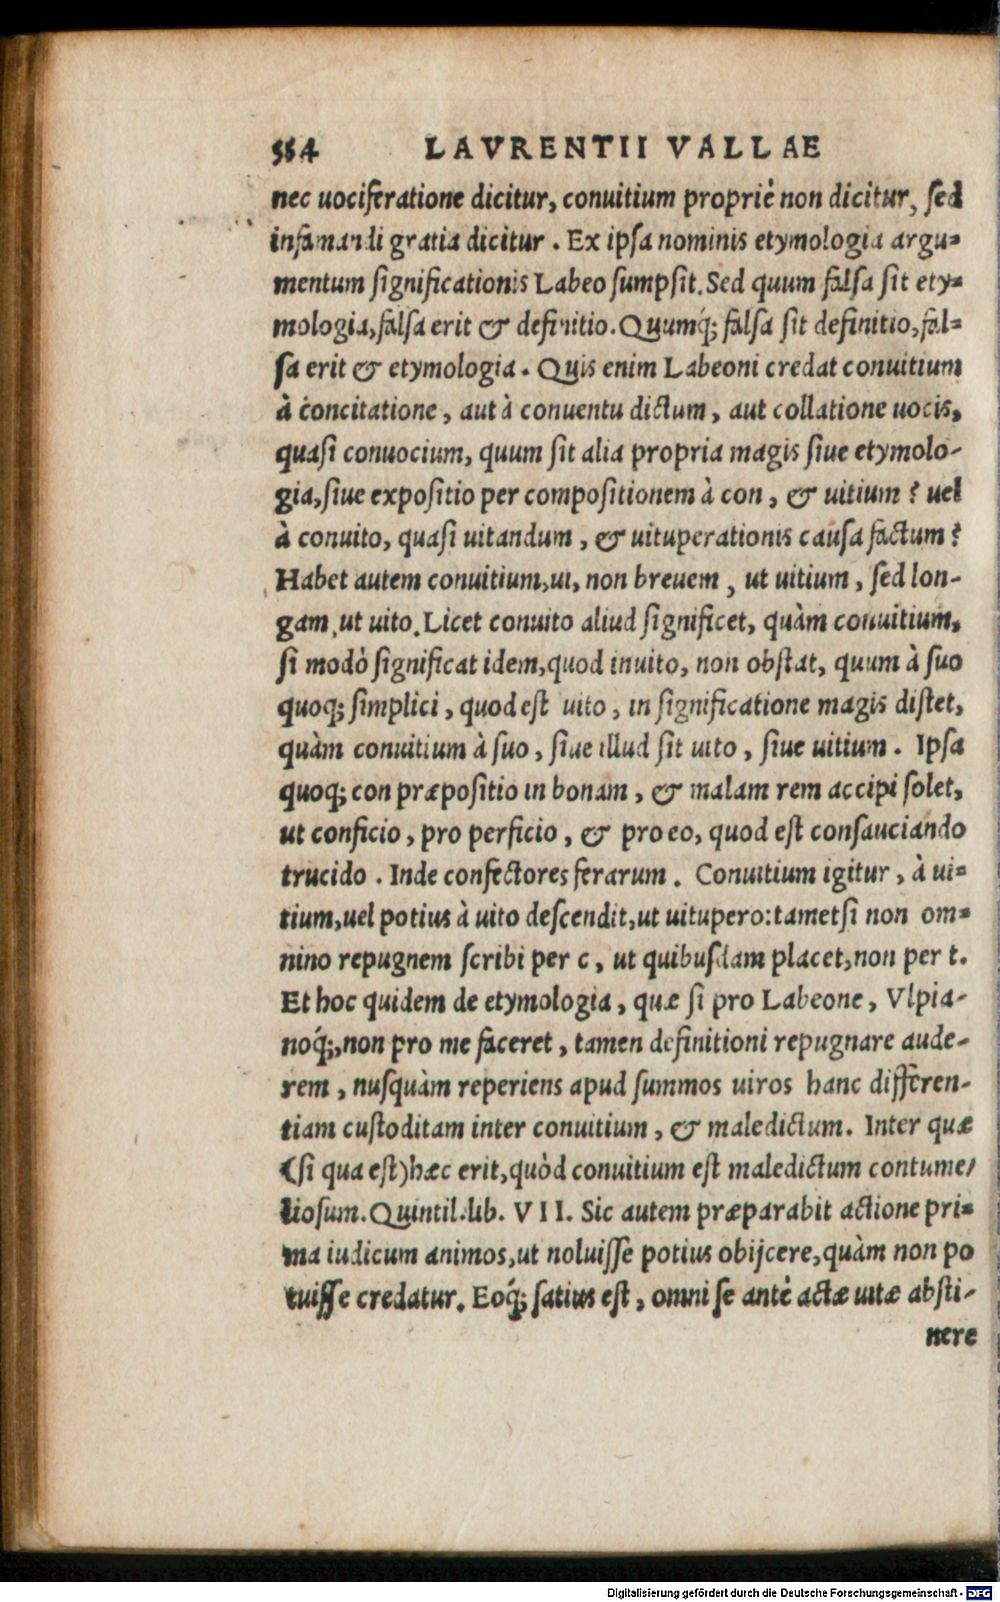 554 LAVRENTII VALLAE
nec uociferatione dicitur, conuitium propriè non dicitur, sed
infamandi gratia dicitur. Ex ipsa nominis etymologia argu=
mentum significationis Labeo sumpsit. Sed quum falsa sit ety=
mologia, falsa erit & definitio. Quumq́; falsa sit definitio, fal=
sa erit & etymologia. Quis enim Labeoni credat conuitium
à concitatione, aut à conuentu dictum, aut collatione uocis,
quasi conuocium, quum sit alia propria magis siue etymolo-
gia, siue expositio per compositionem à con, & uitium? uel
à conuito, quasi uitandum, & uituperationis causa factum?
Habet autem conuitium, ui, non breuem, ut uitium, sed lon-
gam, ut uito. Licet conuito aliud significet, quàm conuitium,
si modò significat idem, quod inuito, non obstat, quum à suo
quoq; simplici, quod est uito, in significatione magis distet,
quàm conuitium à suo, siue illud sit uito, siue uitium. Ipsa
quoq; con præpositio in bonam, & malam rem accipi solet,
ut conficio, pro perficio, & pro eo, quod est consauciando
trucido. Inde confectores ferarum. Conuitium igitur, à ui=
tium, uel potius à uito descendit, ut uitupero: tametsi non om=
nino repugnem scribi per c, ut quibusdam placet, non per t.
Et hoc quidem de etymologia, quæ si pro Labeone, Vlpia-
noq́;, non pro me faceret, tamen definitioni repugnare aude-
rem, nusquàm reperiens apud summos uiros hanc differen-
tiam custoditam inter conuitium, & maledictum. Inter quæ
(si qua est) hæc erit, quòd conuitium est maledictum contume/
liosum. Quintil. lib. VII. Sic autem præparabit actione pri=
ma iudicum animos, ut noluisse potius obijcere, quàm non po
tuisse credatur. Eoq́; satius est, omni se antè actæ uitæ absti-
nere
Digitalisierung gefördert durch die Deutsche Forschungsgemeinschaft - DFG